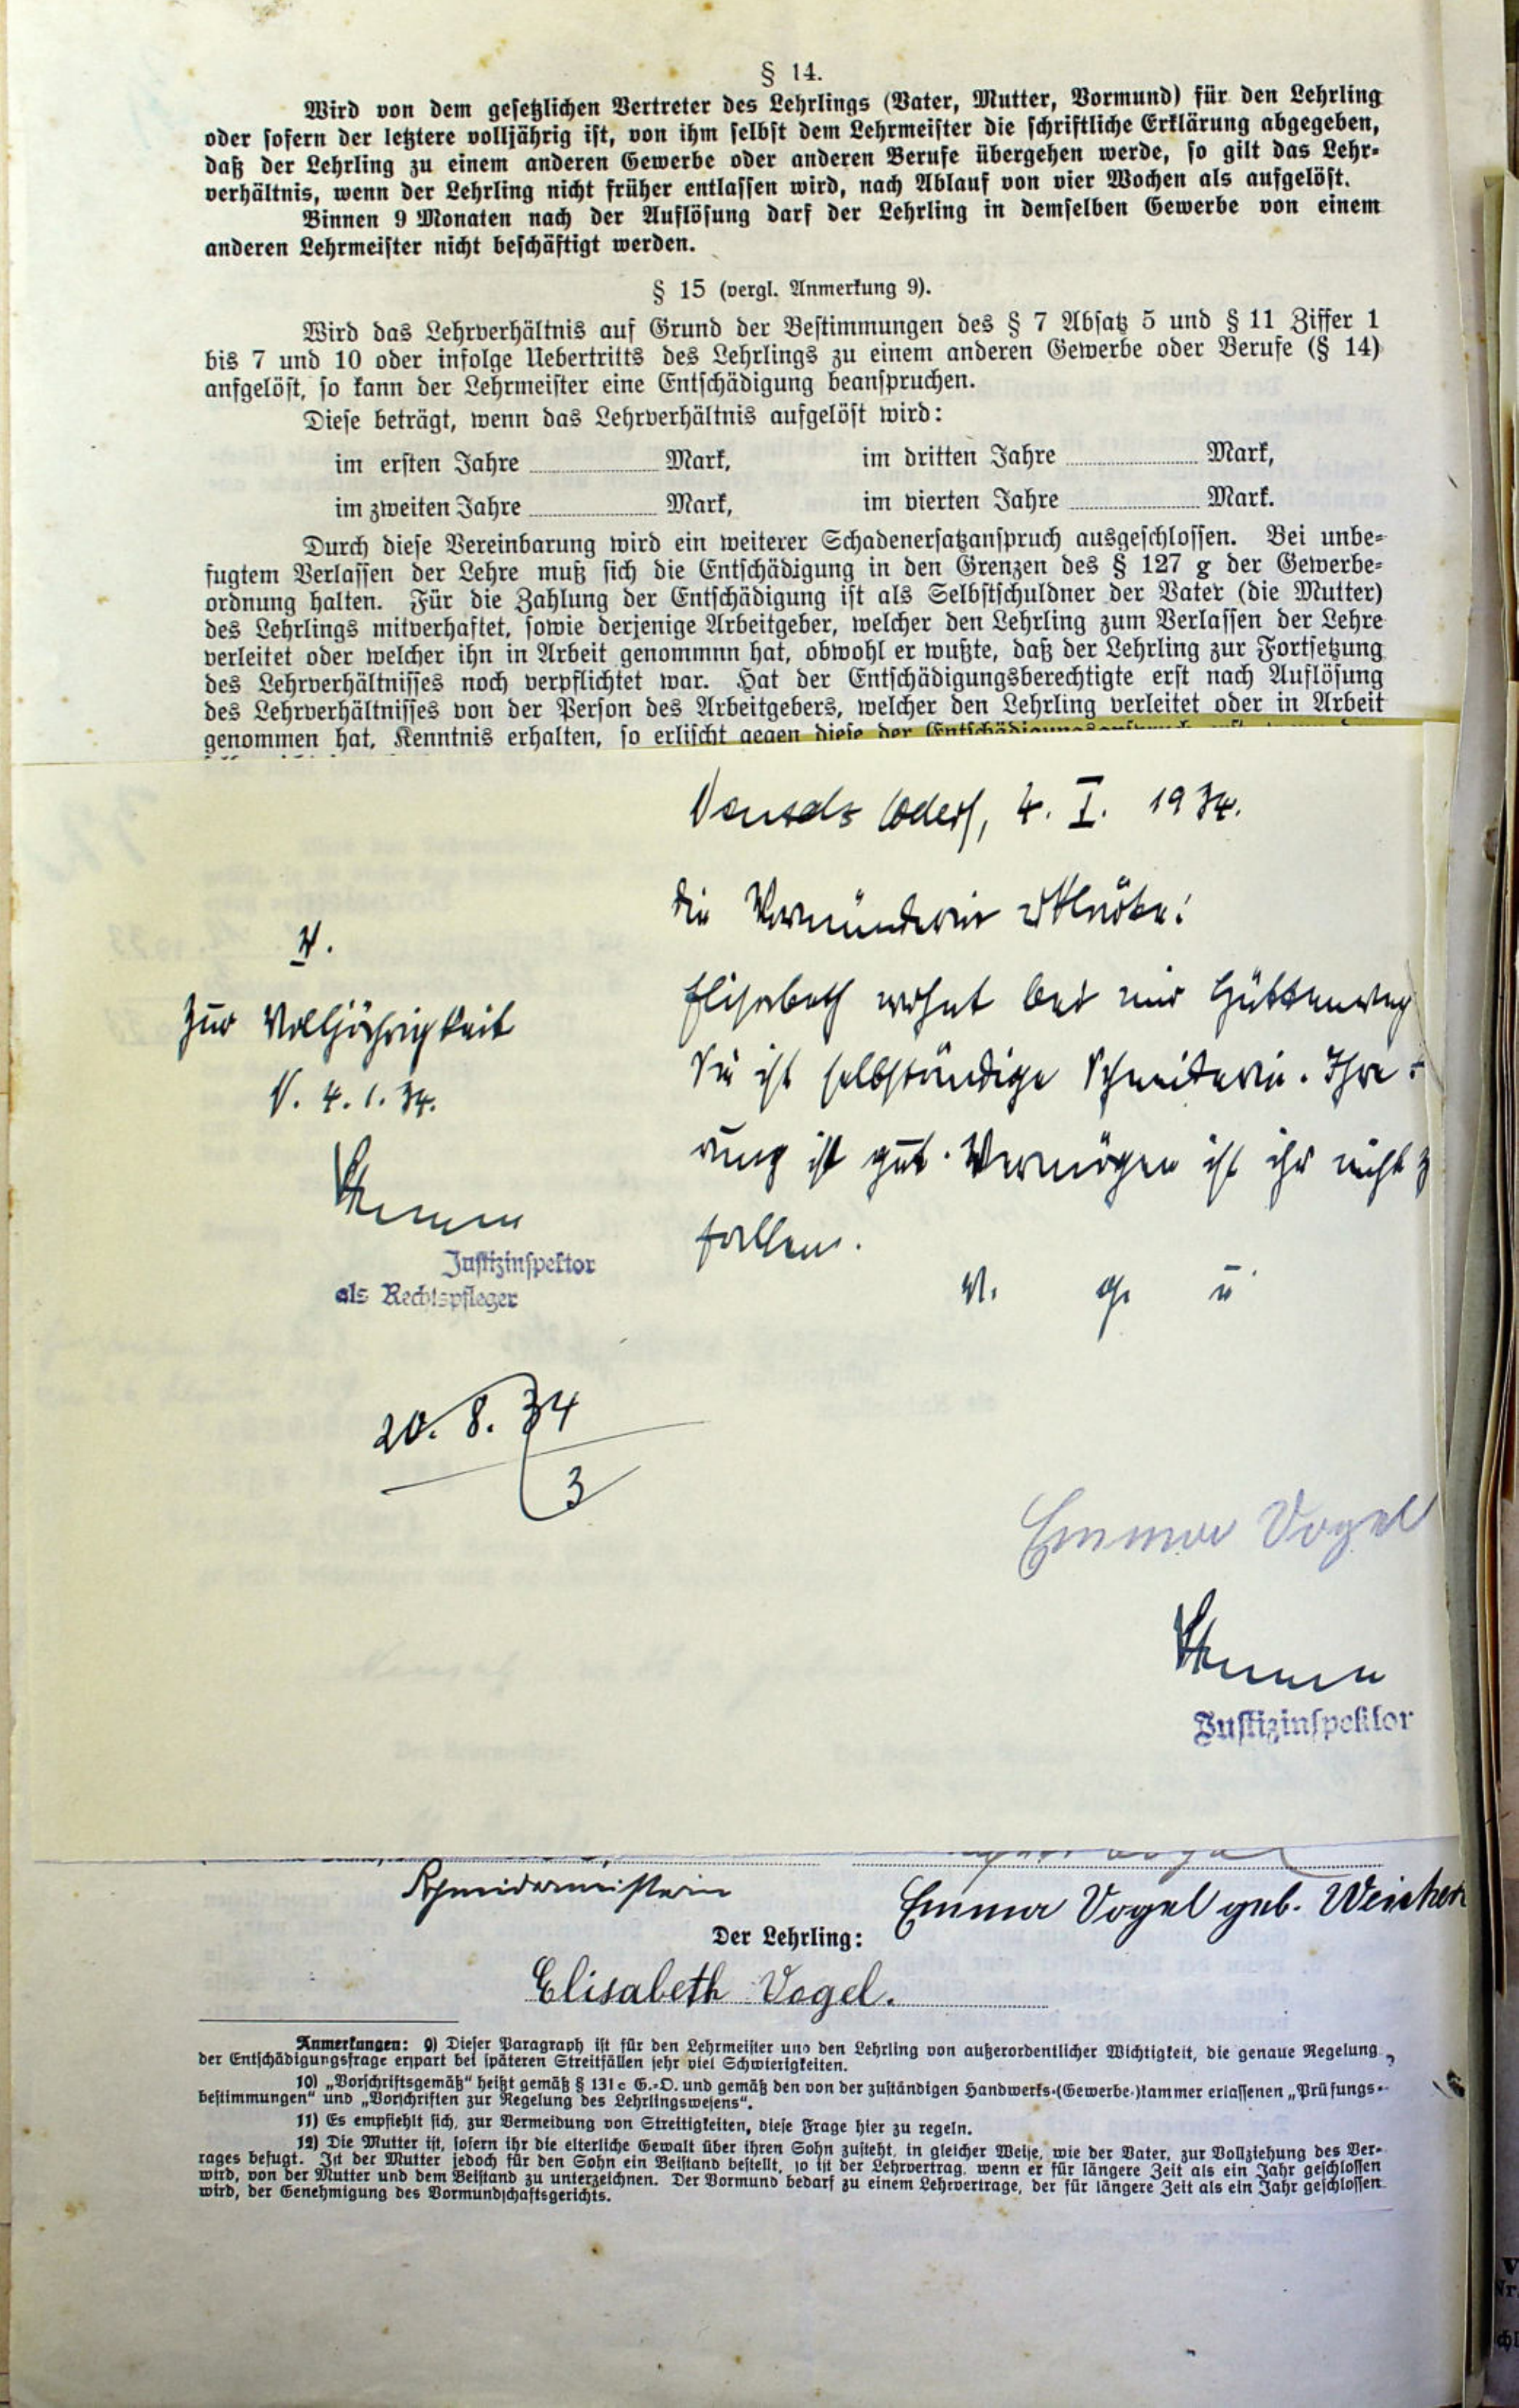 § 14.
Wird von dem gesetzlichen Vertreter des Lehrlings (Vater, Mutter, Vormund) für den Lehrling
oder sofern der letztere volljährig ist, von ihm selbst dem Lehrmeister die schriftliche Erklärung abgegeben,
daß der Lehrling zu einem anderen Gewerbe oder anderen Berufe übergehen werde, so gilt das Lehr-
verhältnis, wenn der Lehrling nicht früher entlassen wird, nach Ablauf von vier Wochen als aufgelöst.
Binnen 9 Monaten nach der Auflösung darf der Lehrling in demselben Gewerbe von einem
anderen Lehrmeister nicht beschäftigt werden.
§ 15 (vergl. Anmerkung 9).
Wird das Lehrverhältnis auf Grund der Bestimmungen des § 7 Absatz 5 und § 11 Ziffer 1
bis 7 und 10 oder infolge Uebertritts des Lehrlings zu einem anderen Gewerbe oder Berufe (§ 14)
anfgelöst, so kann der Lehrmeister eine Entschädigung beanspruchen.
Diese beträgt, wenn das Lehrverhältnis aufgelöst wird:
im ersten Jahre Mark, im dritten Jahre Mark,
im zweiten Jahre Mark, im vierten Jahre Mark.
Durch diese Vereinbarung wird ein weiterer Schadenersatzanspruch ausgeschlossen. Bei unbe-
fugtem Verlassen der Lehre muß sich die Entschädigung in den Grenzen des § 127 g der Gewerbe-
ordnung halten. Für die Zahlung der Entschädigung ist als Selbstschuldner der Vater (die Mutter)
des Lehrlings mitverhaftet, sowie derjenige Arbeitgeber, welcher den Lehrling zum Verlassen der Lehre
verleitet oder welcher ihn in Arbeit genommnn hat, obwohl er wußte, daß der Lehrling zur Fortsetzung
des Lehrverhältnisses noch verpflichtet war. Hat der Entschädigungsberechtigte erst nach Auflösung
des Lehrverhältnisses von der Person des Arbeitgebers, welcher den Lehrling verleitet oder in Arbeit
genommen hat, Kenntnis erhalten, so erlischt gegen diese der Entschädigungsanspruch erst
(Oder), 4. I. 1934.
Die Vormünderin erklärte:
Elisabeth wohnt bei mir Hüttenweg
Sie ist selbständige Schneiderin. Ihre
rung ist gut. Vermögen ist ihr nicht z
fallen.
v. g. u.
V.
Zur Volljährigkeit
N. 4.1.34.
Justizinspektor
als Rechtspfleger
20. 8. 34
3
Emma Vogel
Justizinspektor
Schneidermeisterin
Emma Vogel geb.
Der Lehrling:
Elisabeth Vogel.
Anmerkungen: 9) Dieser Paragraph ist für den Lehrmeister und den Lehrling von außerordentlicher Wichtigkeit, die genaue Regelung
der Entschädigungsfrage erspart bei späteren Streitfällen sehr viel Schwierigkeiten.
10) „Vorschriftsgemäß“ heißt gemäß § 131 c G.-O. und gemäß den von der zuständigen Handwerks-(Gewerbe-)kammer erlassenen „Prüfungs-
bestimmungen“ und „Vorschriften zur Regelung des Lehrlingswesens“.
11) Es empfiehlt sich, zur Vermeidung von Streitigkeiten, diese Frage hier zu regeln.
12) Die Mutter ist, sofern ihr die elterliche Gewalt über ihren Sohn zusteht, in gleicher Weise, wie der Vater, zur Vollziehung des Ver-
rages befugt. Ist der Mutter jedoch für den Sohn ein Beistand bestellt, so ist der Lehrvertrag, wenn er für längere Zeit als ein Jahr geschlossen
wird, von der Mutter und dem Beistand zu unterzeichnen. Der Vormund bedarf zu einem Lehrvertrage, der für längere Zeit als ein Jahr geschlossen
wird, der Genehmigung des Vormundschaftsgerichts.